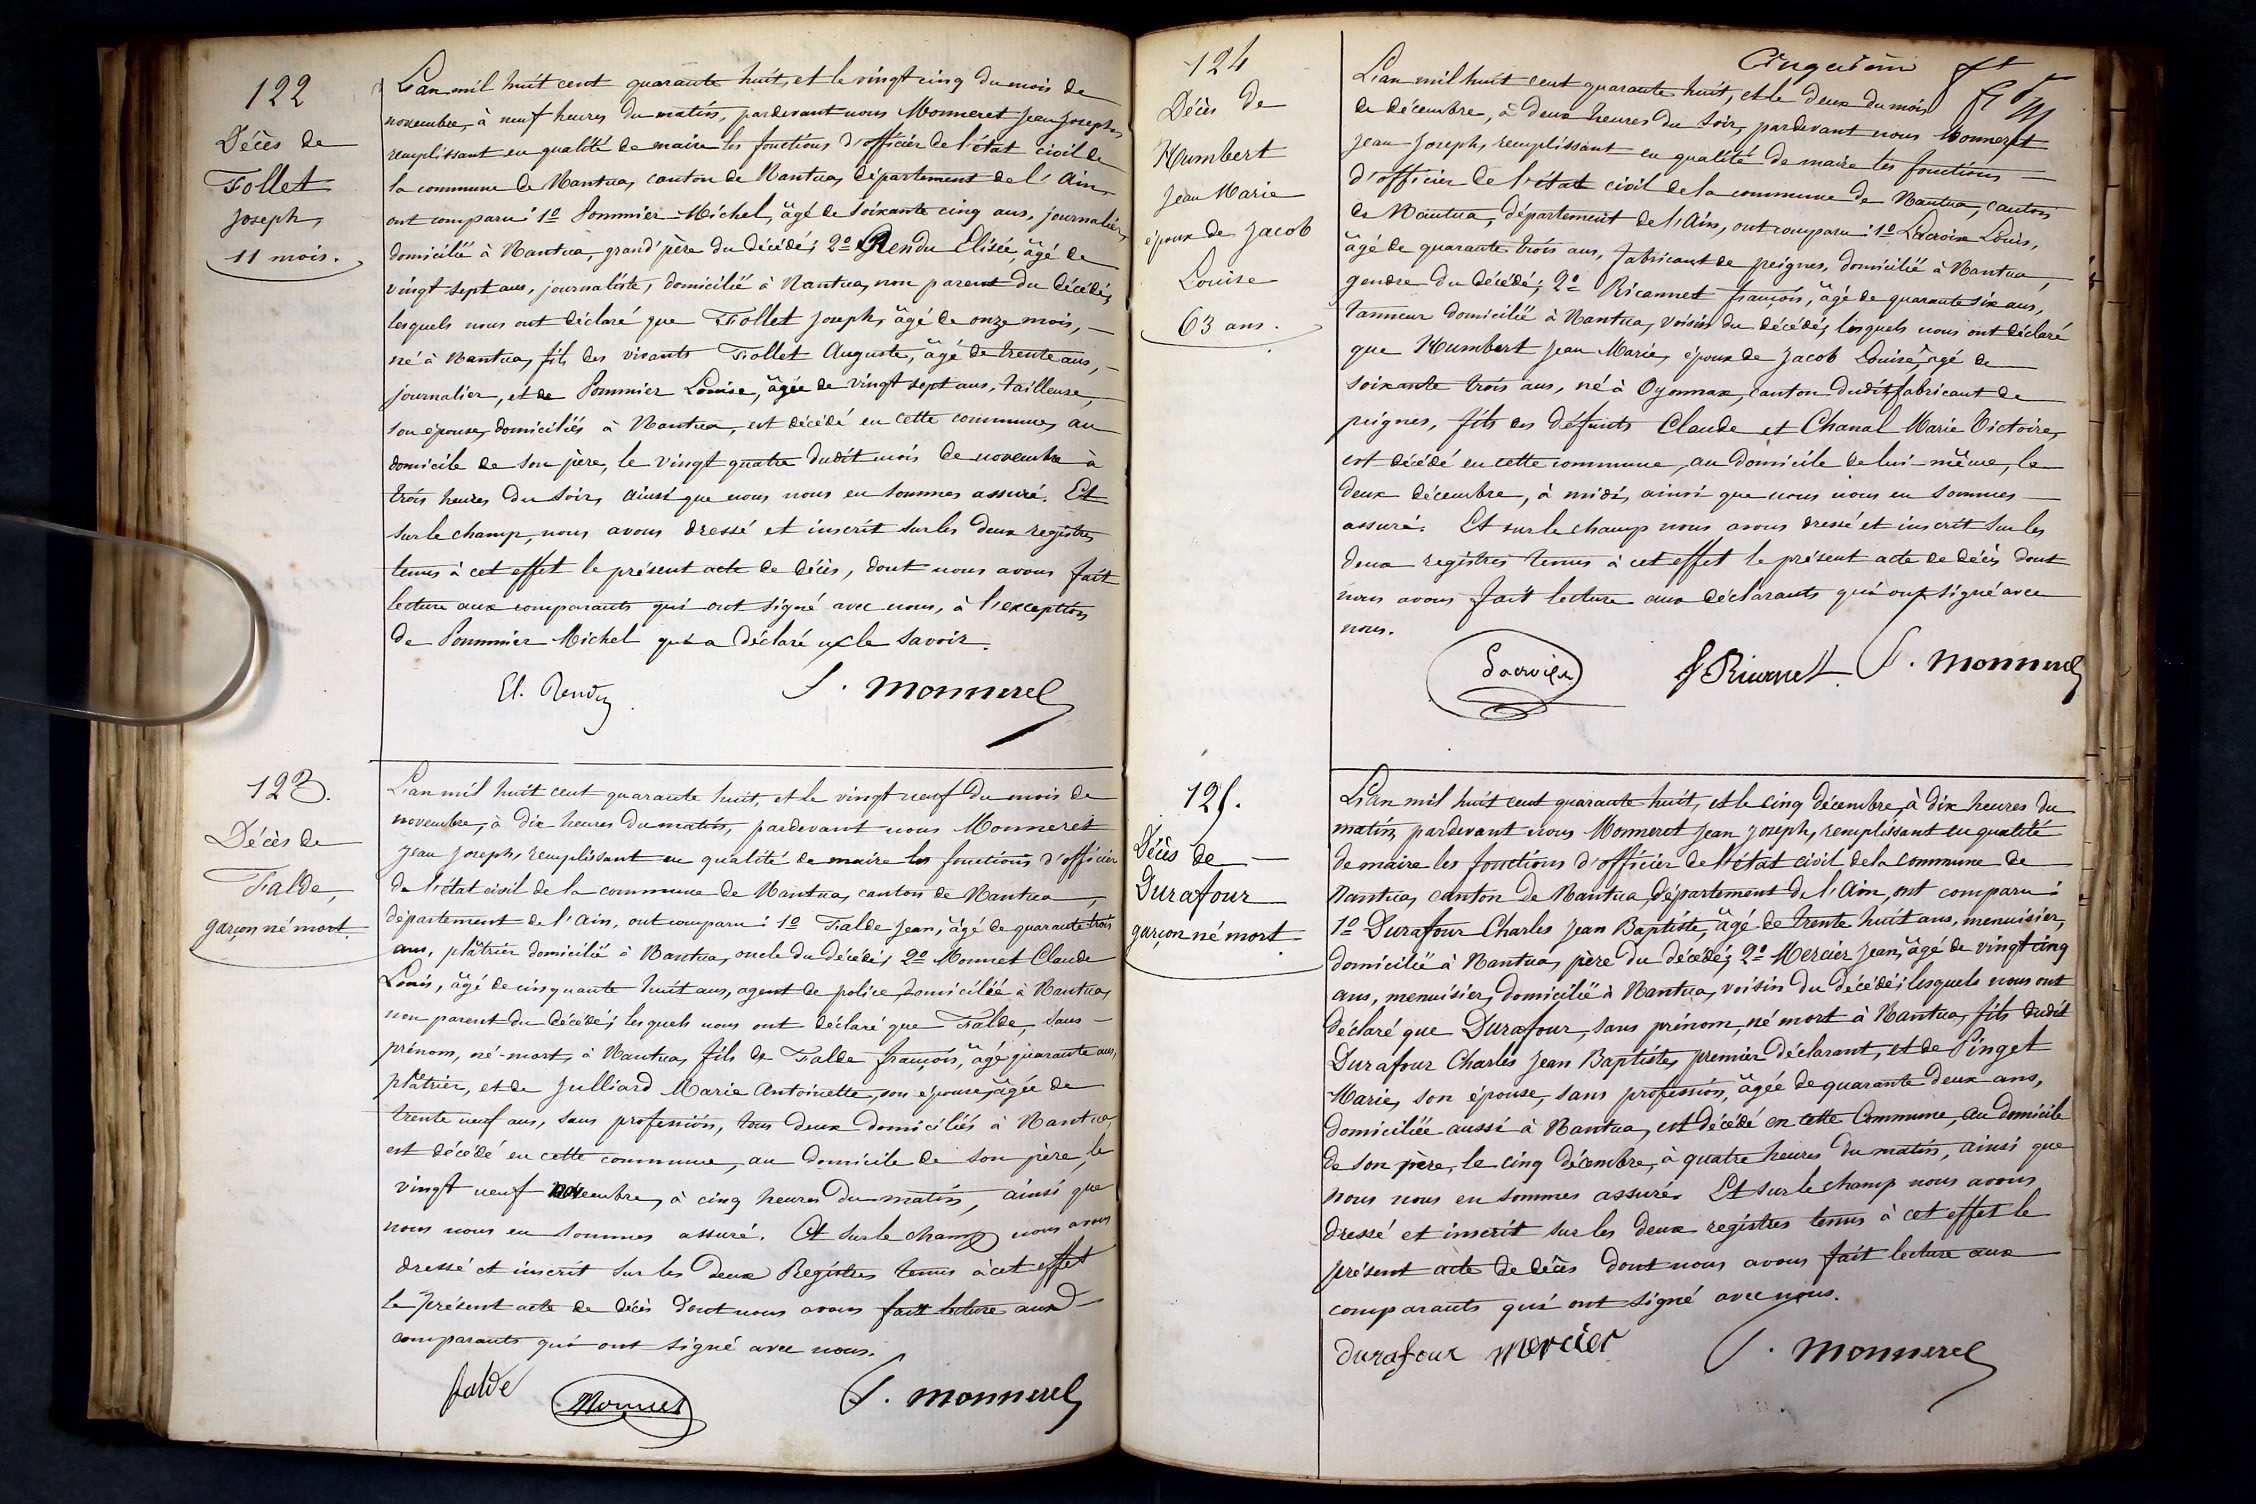 122
Décès de
Follet
Joseph,
11 mois.
L'an mil huit cent quarante huit, et le vingt cinq du mois de
novembre, à neuf heures du matin, pardevant nous Monneret Jean Joseph,
remplissant en qualité de maire les fonctions d'officier de l'état civil de
la commune de Nantua, canton de Nantua, département de l'Ain,
ont comparu: 1º Pommier Michel, âgé de soixante cinq ans, journalier,
domicilié à Nantua, grand'père du décédé; 2º Rendu Elisée, âgé de
vingt sept ans, journaliste, domicilié à Nantua, non parent du décédé,
lesquels nous ont déclaré que Follet Joseph, âgé de onze mois,
né à Nantua, fils des vivants Follet Auguste, âgé de trente ans,
journalier, et de Pommier Louise, âgée de vingt sept ans, tailleuse,
son épouse, domiciliés à Nantua, est décédé en cette commune, au
domicile de son père, le vingt quatre dudit mois de novembre à
trois heures du soir, ainsi que nous nous en sommes assuré. Et
sur le champ, nous avons dressé et inscrit sur les deux registres
tenus à cet effet le présent acte de décès, dont nous avons fait
lecture aux comparants qui ont signé avec nous, à l'exception
de Pommier Michel qui a déclaré ne le savoir.
El. Rendu
J. Monneret
123.
Décès de
Falde,
garçon né mort.
L'an mil huit cent quarante huit, et le vingt neuf du mois de
novembre, à dix heures du matin, pardevant nous Monneret
Jean Joseph, remplissant en qualité de maire les fonctions d'officier
de l'état civil de la commune de Nantua, canton de Nantua,
département de l'Ain, ont comparu: 1º Falde Jean, âgé de quarante trois
ans, plâtrier domicilié à Nantua, oncle du décédé, 2º Monnet Claude
Louis, âgé de cinquante huit ans, agent de police, domicilié à Nantua,
non parent du décédé; lesquels nous ont déclaré que Falde, sans
prénom, né-mort, à Nantua, fils de Falde françois, âgé quarante ans,
plâtrier, et de Julliard Marie Antoinette, son épouse, âgée de
trente neuf ans, sans profession, tous deux domiciliés à Nantua,
est décédé en cette commune, au domicile de son père, le
vingt neuf novembre, à cinq heures du matin, ainsi que
nous nous en sommes assuré. Et sur le champ nous avons
dressé et inscrit sur les deux Registres tenus à cet effet
le présent acte de décès dont nous avons fait lecture aux
comparants qui ont signé avec nous.
falde
Monnet
J. Monneret
124
Décès de
Humbert
Jean Marie
époux de Jacob
Louise
63 ans.
Cinquième
L'an mil huit cent quarante huit, et le deux du mois
de décembre, à deux heures du soir, pardevant nous Monneret
Jean Joseph, remplissant en qualité de maire les fonctions
d'officier de l'état civil de la commune de Nantua, canton
de Nantua, département de l'Ain, ont comparu: 1º Lacroix Louis,
âgé de quarante trois ans, fabricant de peignes, domicilié à Nantua,
gendre du décédé; 2º Ricannet françois, âgé de quarante six ans,
tanneur domicilié à Nantua, voisin du décédé, lesquels nous ont déclaré
que Humbert Jean Marie, époux de Jacob Louise, âgé de
soixante trois ans, né à Oyonnax, canton dudit, fabricant de
peignes, fils des défunts Claude et Chanal Marie Victoire,
est décédé en cette commune, au domicile de lui-même, le
deux décembre, à midi, ainsi que nous nous en sommes
assuré. Et sur le champ nous avons dressé et inscrit sur les
deux registres tenus à cet effet le présent acte de décès dont
nous avons fait lecture aux déclarants qui ont signé avec
nous.
Lacroix
J. Monneret
125.
Décès de
Durafour
garçon né mort
L'an mil huit cent quarante huit, et le cinq décembre, à dix heures du
matin, pardevant nous Monneret Jean Joseph, remplissant en qualité
de maire les fonctions d'officier de l'état civil de la commune de
Nantua, canton de Nantua, département de l'Ain, ont comparu:
1º Durafour Charles Jean Baptiste, âgé de trente huit ans, menuisier,
domicilié à Nantua, père du décédé; 2º Mercier Jean, âgé de vingt cinq
ans, menuisier, domicilié à Nantua, voisin du décédé; lesquels nous ont
déclaré que Durafour, sans prénom, né mort à Nantua, fils dudit
Durafour Charles Jean Baptiste, premier déclarant, et de Pinget
Marie, son épouse, sans profession, âgée de quarante deux ans,
domiciliée aussi à Nantua, est décédé en cette Commune, au domicile
de son père, le cinq décembre, à quatre heures du matin, ainsi que
nous nous en sommes assuré. Et sur le champ nous avons
dressé et inscrit sur les deux registres tenus à cet effet le
présent acte de décès dont nous avons fait lecture aux
comparants qui ont signé avec nous.
Durafour Mercier
J. Monneret